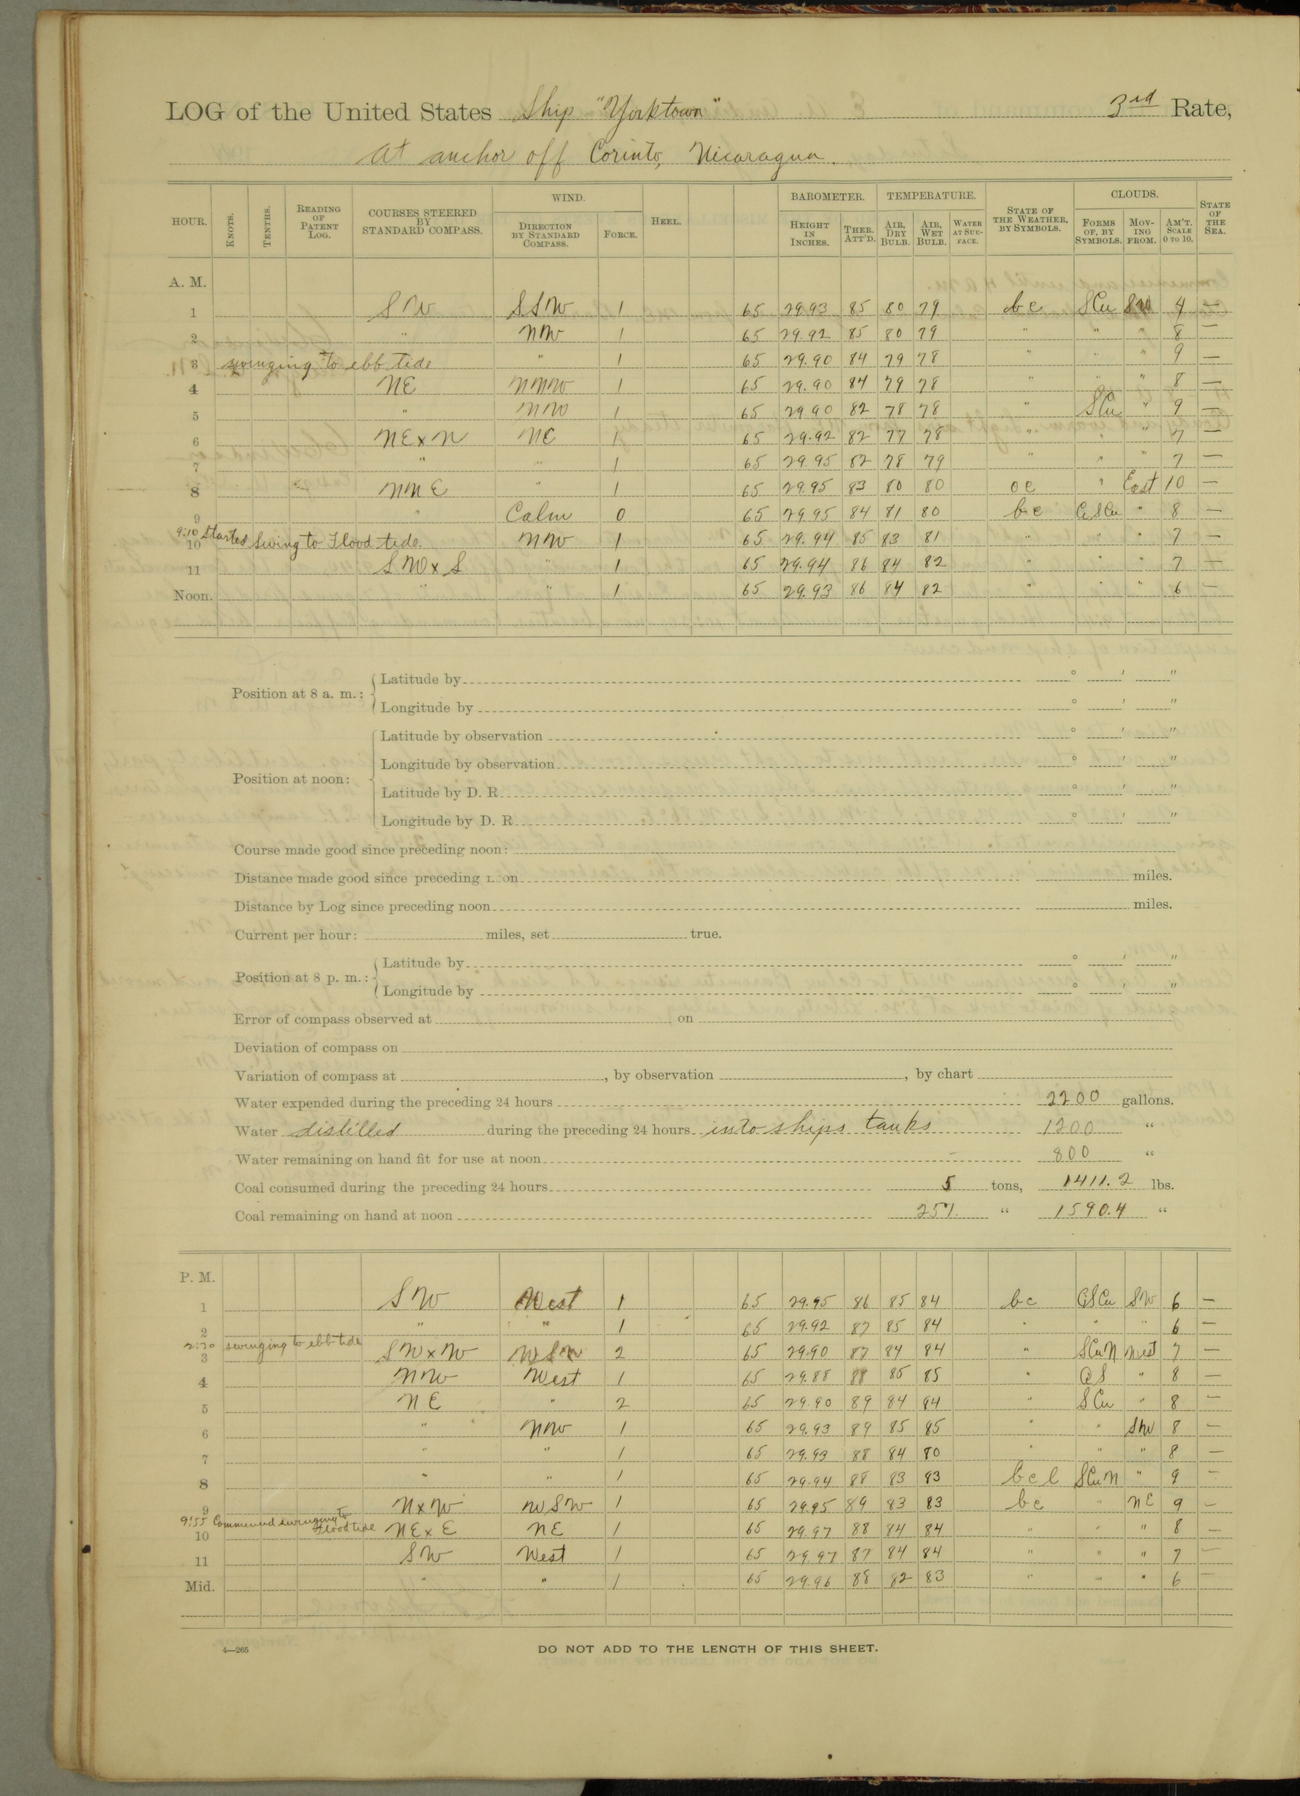 LOG of the United States Ship "Yorktown" 3rd Rate,
At anchor off Corinto, Nicaragua.
HOUR. KNOTS. TENTHS. READING OF PATENT LOG. COURSES STEERED BY STANDARD COMPASS. WIND. DIRECTION BY STANDARD COMPASS. FORCE. HEEL. BAROMETER. HEIGHT IN INCHES. THER. ATT'D. TEMPERATURE. AIR, DRY BULB. AIR, WET BULB. WATER AT SURFACE. STATE OF THE WEATHER, BY SYMBOLS. CLOUDS. FORMS OF, BY SYMBOLS. MOVING FROM. AM'T. SCALE 0 TO 10. STATE OF THE SEA.
A. M.
1 SW SSW 1 65 29.93 85 80 79 bc SCu SW 4 —
2 " NW 1 65 29.92 85 80 79 " " " 8 —
3 swinging to ebb tide " 1 65 29.90 84 79 78 " " " 9 —
4 NE NNW 1 65 29.90 84 79 78 " " " 8 —
5 " NW 1 65 29.90 82 78 78 " SCu " 9 —
6 NExN NE 1 65 29.92 82 77 78 " " " 7 —
7 " " 1 65 29.95 82 78 79 " " " 7 —
8 NNE " 1 65 29.95 83 80 80 oc " East 10 —
9 " Calm 0 65 29.95 84 81 80 bc CSCu " 8 —
9:10 Started Swing to Flood tide.
10 NW 1 65 29.94 85 83 81 " " " 7 —
11 SWxS " 1 65 29.94 86 84 82 " " " 7 —
Noon. " " 1 65 29.93 86 84 82 " " " 6 —
Position at 8 a. m.: Latitude by ° ′ ″
Longitude by ° ′ ″
Position at noon: Latitude by observation ° ′ ″
Longitude by observation ° ′ ″
Latitude by D. R. ° ′ ″
Longitude by D. R. ° ′ ″
Course made good since preceding noon:
Distance made good since preceding noon miles.
Distance by Log since preceding noon miles.
Current per hour: miles, set true.
Position at 8 p. m.: Latitude by ° ′ ″
Longitude by ° ′ ″
Error of compass observed at on
Deviation of compass on
Variation of compass at , by observation , by chart
Water expended during the preceding 24 hours 2200 gallons.
Water distilled during the preceding 24 hours into ships tanks 1200 "
Water remaining on hand fit for use at noon 800 "
Coal consumed during the preceding 24 hours 5 tons, 1411.2 lbs.
Coal remaining on hand at noon 257. " 1590.4 "
P. M.
1 SW West 1 65 29.95 86 85 84 bc CSCu SW 6 —
2 " " 1 65 29.92 87 85 84 " " " 6 —
2:30 swinging to ebb tide
3 SWxW WSW 2 65 29.90 87 84 84 " SCuN West 7 —
4 NW West 1 65 29.88 88 85 85 " CS " 8 —
5 NE " 2 65 29.90 89 84 84 " SCu " 8 —
6 " NW 1 65 29.93 89 85 85 " " SW 8 —
7 " " 1 65 29.93 88 84 80 " " " 8 —
8 " " 1 65 29.94 88 83 83 bcl SCuN " 9 —
9 NxW WSW 1 65 29.95 89 83 83 bc " NE 9 —
9:55 Commenced swinging to Flood tide
10 NExE NE 1 65 29.97 88 84 84 " " " 8 —
11 SW West 1 65 29.97 87 84 84 " " " 7 —
Mid. " " 1 65 29.96 88 82 83 " " " 6 —
4—265
DO NOT ADD TO THE LENGTH OF THIS SHEET.